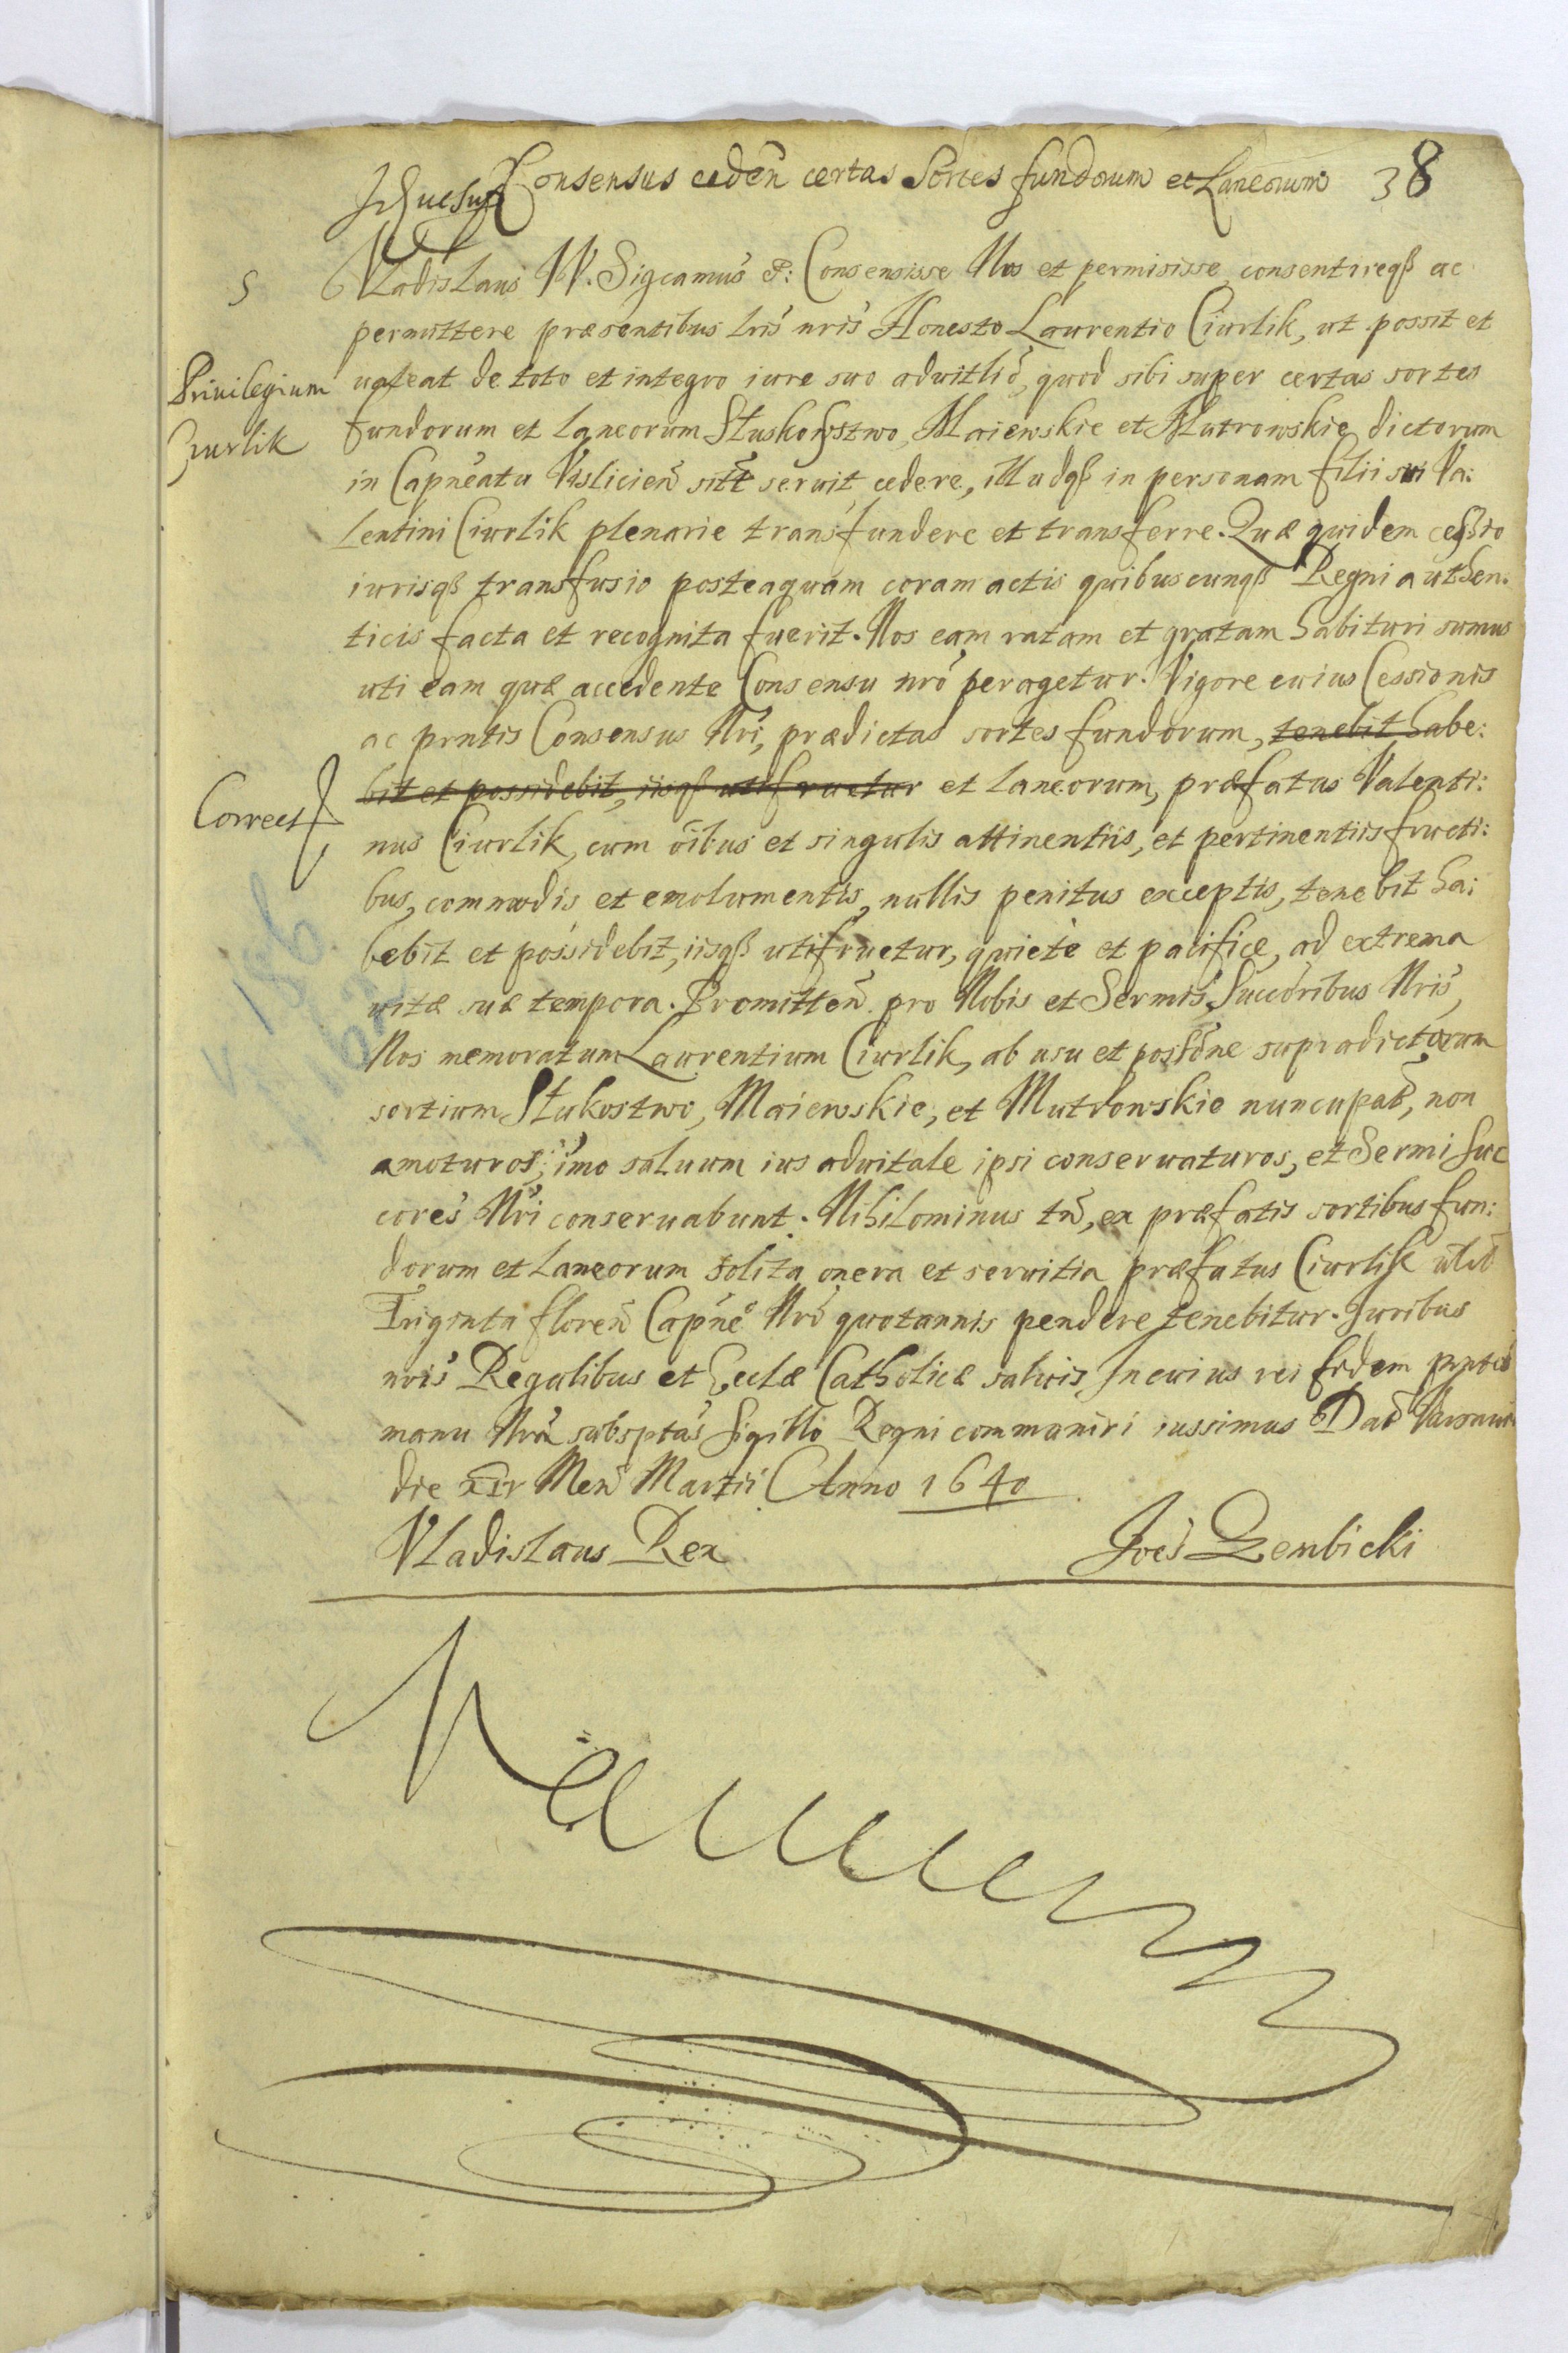 Consensus ceden̄ certas Sortes fundorum et Laneorum 38
5
Vladislaus IV. Sigcamus &: Consensisse Nos et permisisse consentireqß ac
permittere præsentibus lris nris Honesto Laurentio Ciurlik, ut possit et
Priuilegium
Czurlik
ualeat de toto et integro iure suo aduitlio, quod sibi super certas sortes
fundorum et laneorum Stuskowstwo, Maiewskie et Mutrowskie dictorum
in Capneatu Vislicien̄ sitt seruit cedere, illudqß in personam filii sui Va:
lentini Ciurlik plenarie transfundere et transferre. Quæ quidem cessio
iurisqß transfusio posteaquam coram actis quibuscunqß Regni authen:
ticis facta et recognita fuerit. Nos eam ratam et gratam habituri sumus
uti eam quæ accedente Consensu nrō peragetur. Vigore cuius Cessionis
ac prntis Consensus Nri, prædictas sortes fundorum, tenebit habe:
Correct
bit et possidebit, iisqß utifruetur et laneorum, præfatus Valenti:
nus Ciurlik, cum oībus et singulis attinentiis, et pertinentiis fructi:
bus, commodis et emolumentis, nullis penitus exceptis, tenebit ha:
bebit et possidebit, iisqß utifruetur, quiete et pacifice, ad extrema
vitæ suæ tempora. Promitten̄ pro Nobis et Sermis Succoribus Nris,
Nos memoratum Laurentium Ciurlik, ab usu et possōne supradictorum
sortium Stukostwo, Maiewskie, et Mutrowskie nuncupat̄, non
amoturos, imo saluum ius aduitale ipsi conseruaturos, et Sermi Suc
cores Nri conseruabunt. Nihilominus tn̄, ex præfatis sortibus fun:
dorum et Laneorum solita onera et seruitia præfatus Ciurlik
Triginta floren̄ Capneo Nrō quotannis pendere tenebitur. Iuribus
nris Regalibus et Ecclæ Catholicæ saluis. In cuius rei fidem pntes
manu Nra subsptas Sigillo Regni communiri iussimus Dat̄ Varsauiæ
die Men̄ Martii Anno 1640
Vladislaus Rex Joēs Gembicki